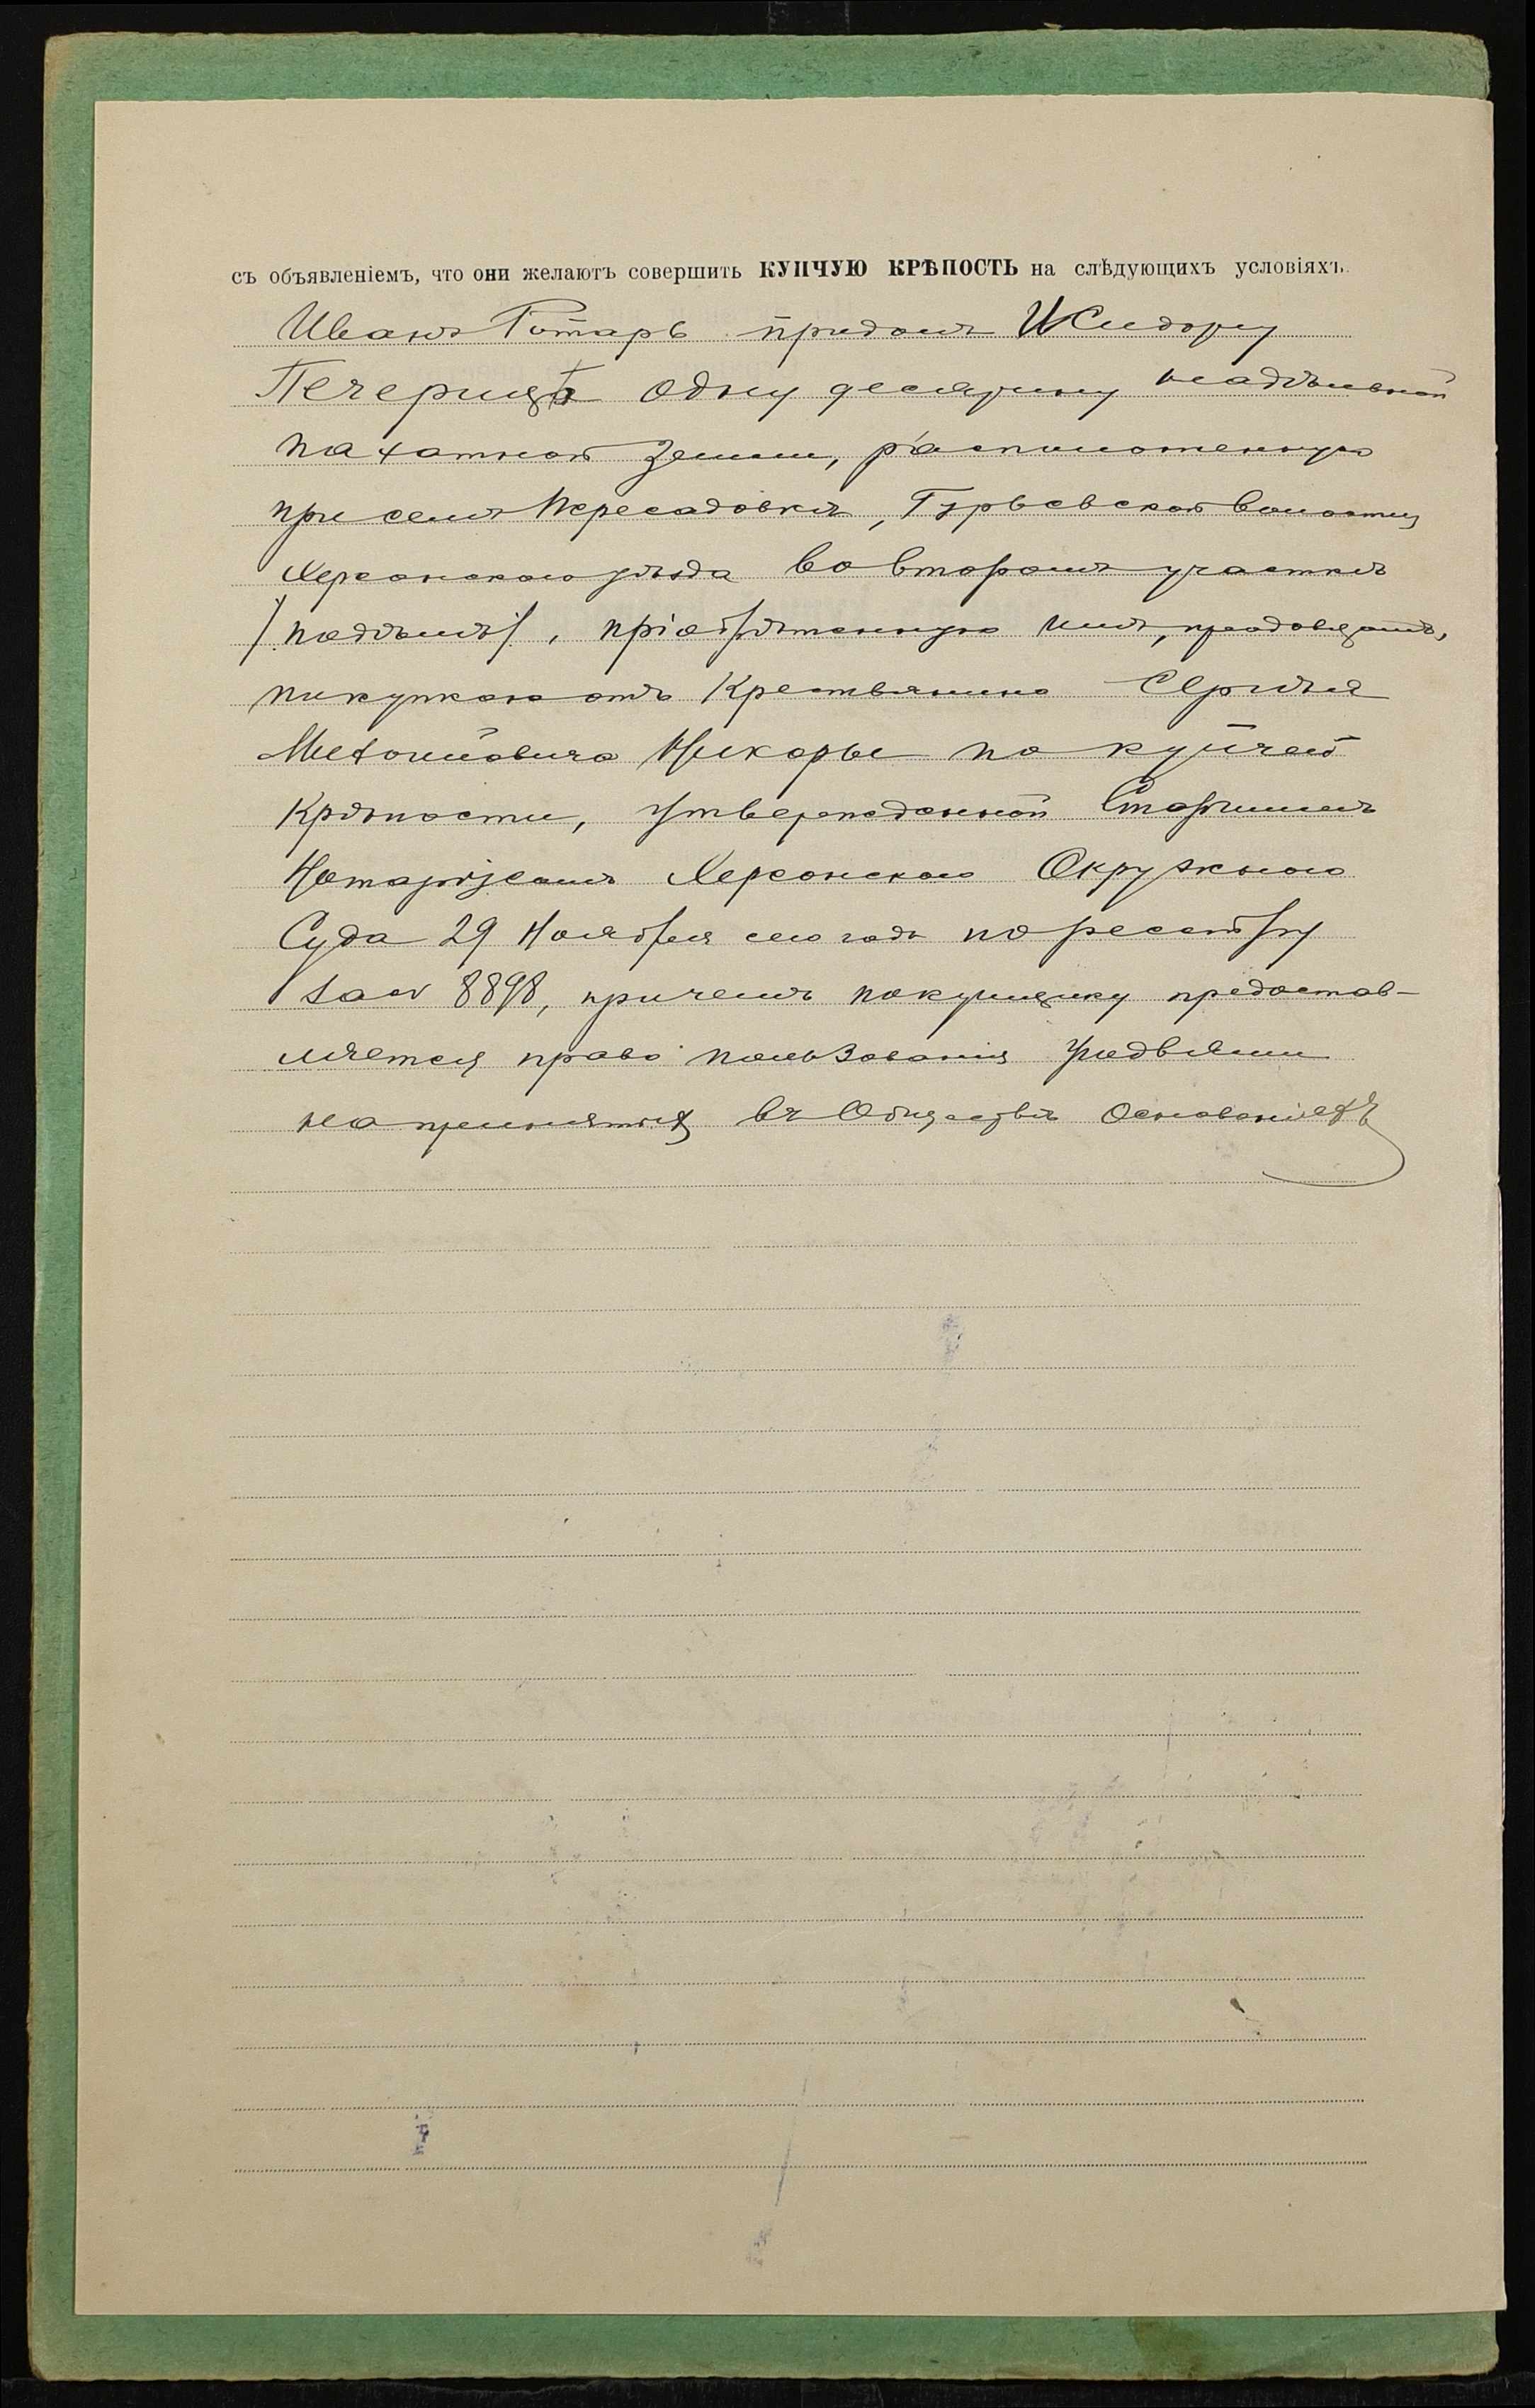 съ объявленіемъ, что они желаютъ совершить КУПЧУЮ КРѢПОСТЬ на слѣдующихъ условіяхъ
Иванъ Ротарь продалъ Исидору
Печерицѣ одну десятину надѣльной
пахатной земли, расположенную
при селѣ Пересадовкѣ, Гурьевской волости
Херсонскаго уѣзда во второмъ участкѣ
/надѣлѣ/, пріобрѣтенную имъ, продавцомъ,
покупкою отъ Крестьянина Сергѣя
Никоры по купчей
Крѣпости, утвержденной Старшимъ
Нотаріусомъ Херсонскаго Окружнаго
Суда 29 Ноября сего года по реестру
за № 8898, причемъ покупщику предостав-
ляется право пользованія
на принятыхъ въ Обществѣ Основаніяхъ